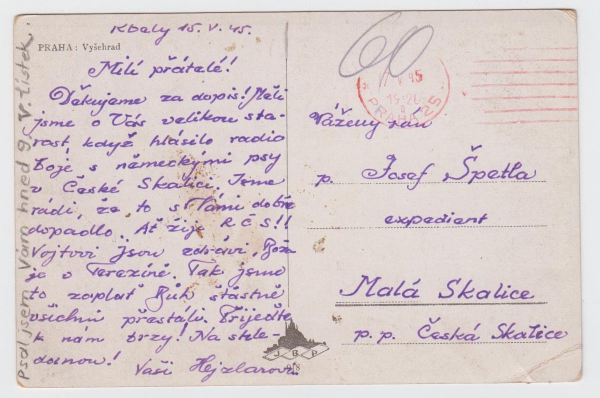 Kbely 15.V.45.
PRAHA: Vyšehrad
Milí přátelé!
Děkujeme za dopis! Měli
jsme o Vás velikou sta-
rost, když hlásilo radio
boje s německými psy
v České Skalici. Jsme
rádi, že to s Vámi dobře
dopadlo. Ať žije RČS!!
Vojtovi jsou zdrávi. Boža
je v Terezíně. Tak jsme
to zaplať Bůh šťastně
všichni přestáli. Přijeďte
k nám brzy! Na shle-
danou!
Vaši Hejzlarovi
psal jsem Vám hned 9. V. lístek.
60
45
PRAHA 25
Vážený pan
p. Josef Špetla
expedient
Malá Skalice
p.p. Česká Skalice
J B P